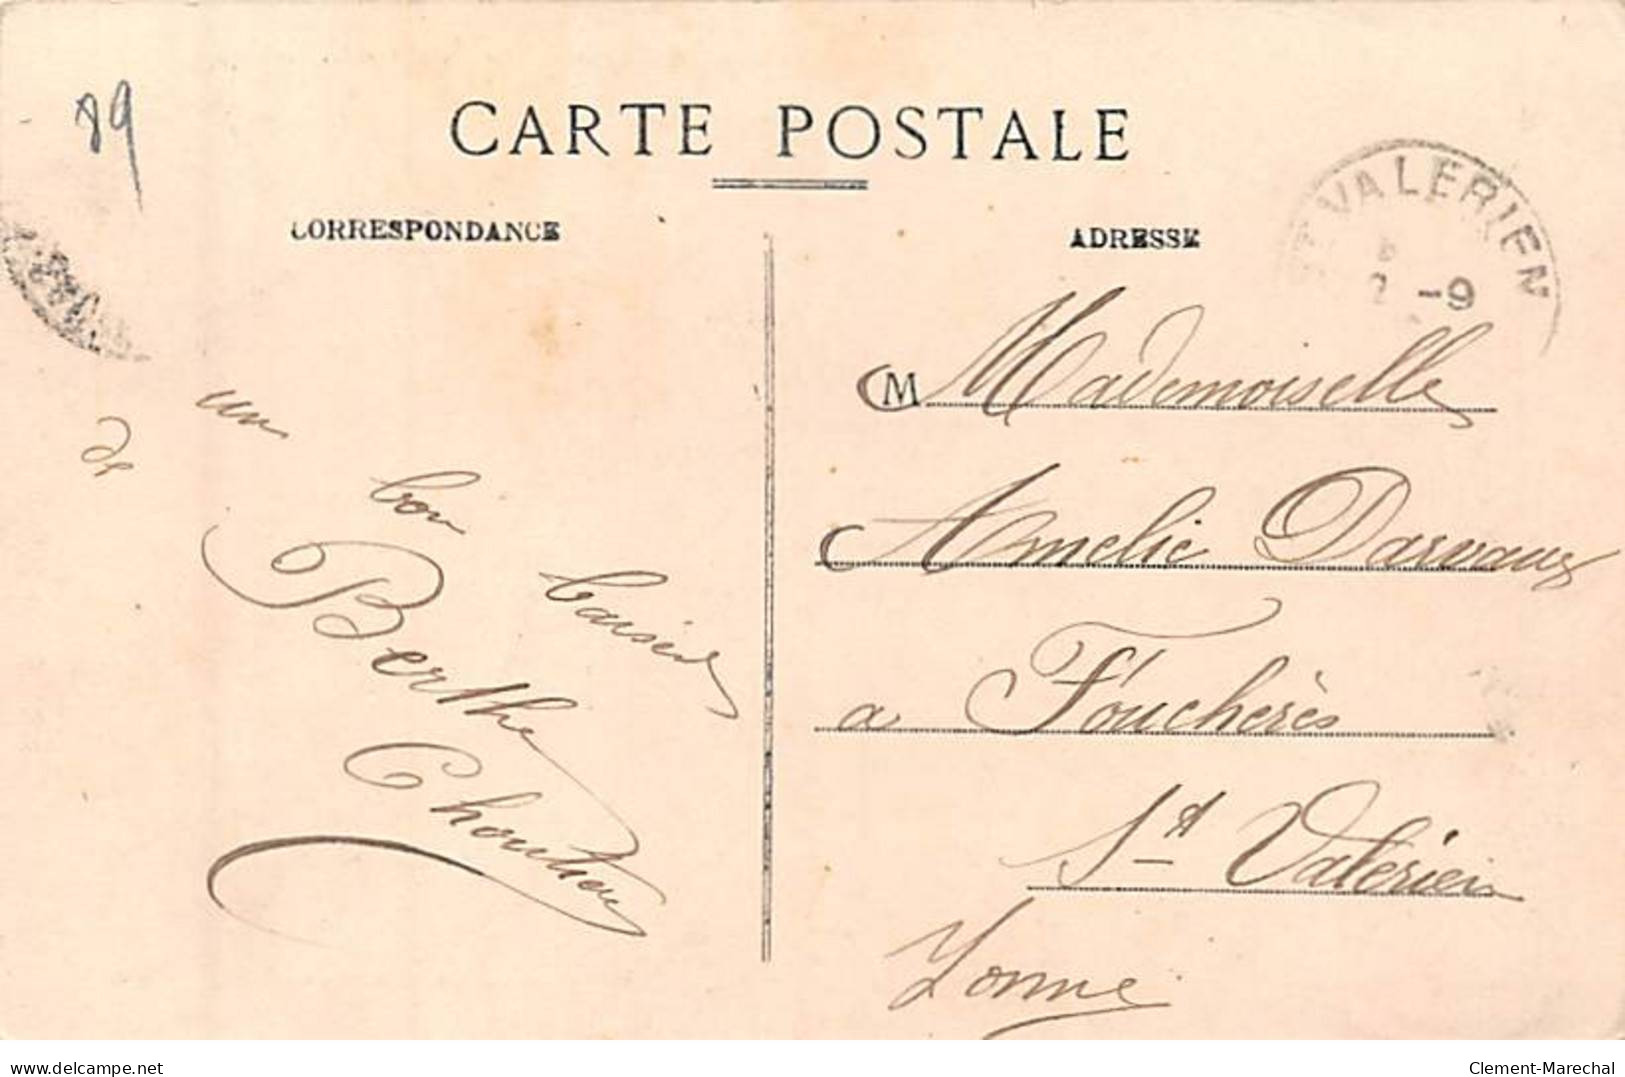 89
CARTE POSTALE
CORRESPONDANCE
ADRESSE
ST VALERIEN
2 -9
un
bon
baiser
de
Berthe
M Mademoiselle
Amelie Darvaux
a Foucherès
St Valerien
Yonne
www.delcampe.net
Clement-Marechal